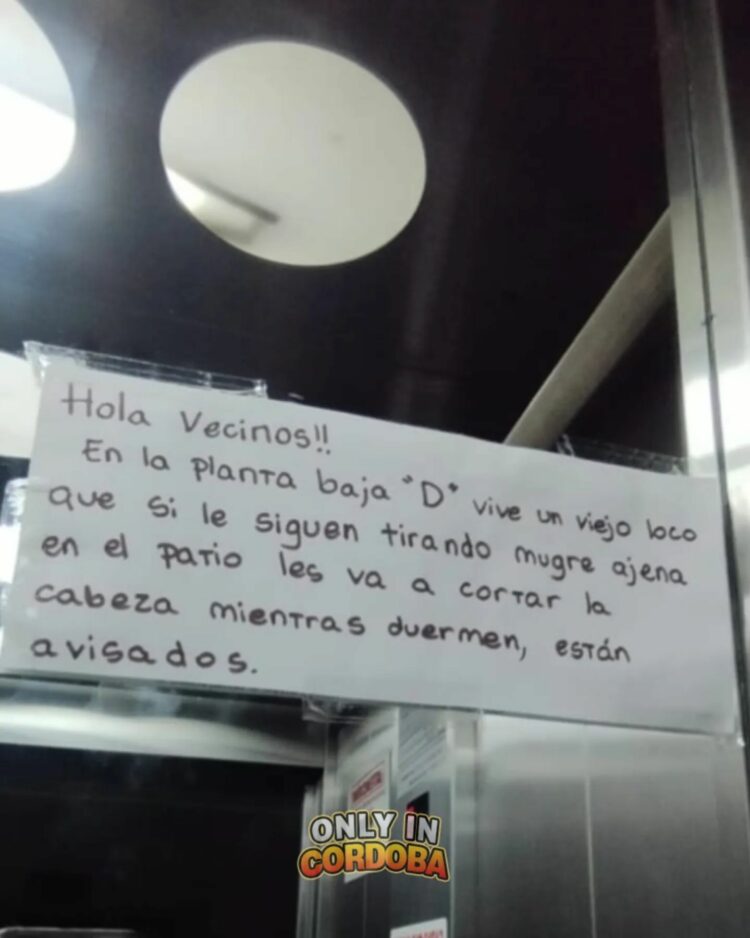 Hola Vecinos!!
En la planta baja "D" vive un viejo loco
que si le siguen tirando mugre ajena
en el patio les va a cortar la
cabeza mientras duermen, están
avisados.
ONLY IN
CORDOBA